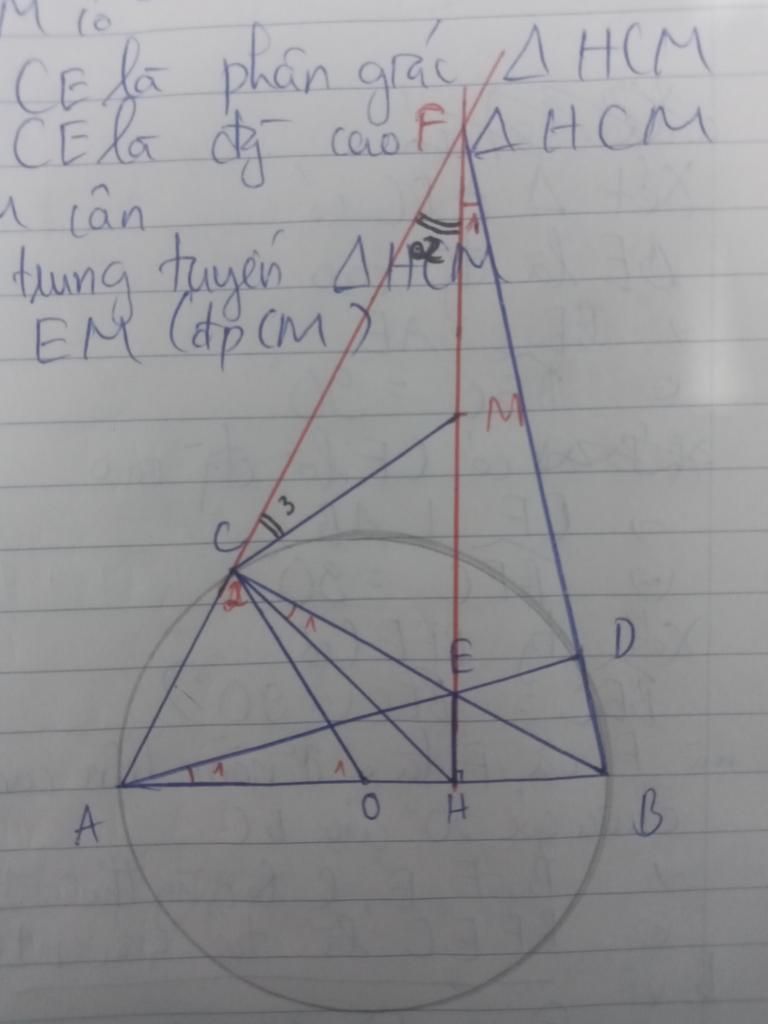 CE là phân giác △HCM
CE là đg cao △HCM
cân
trung tuyến △HCM
EM (đpCM)
F
1
2
M
3
C
2
1
E
D
1
1
A
O
H
B